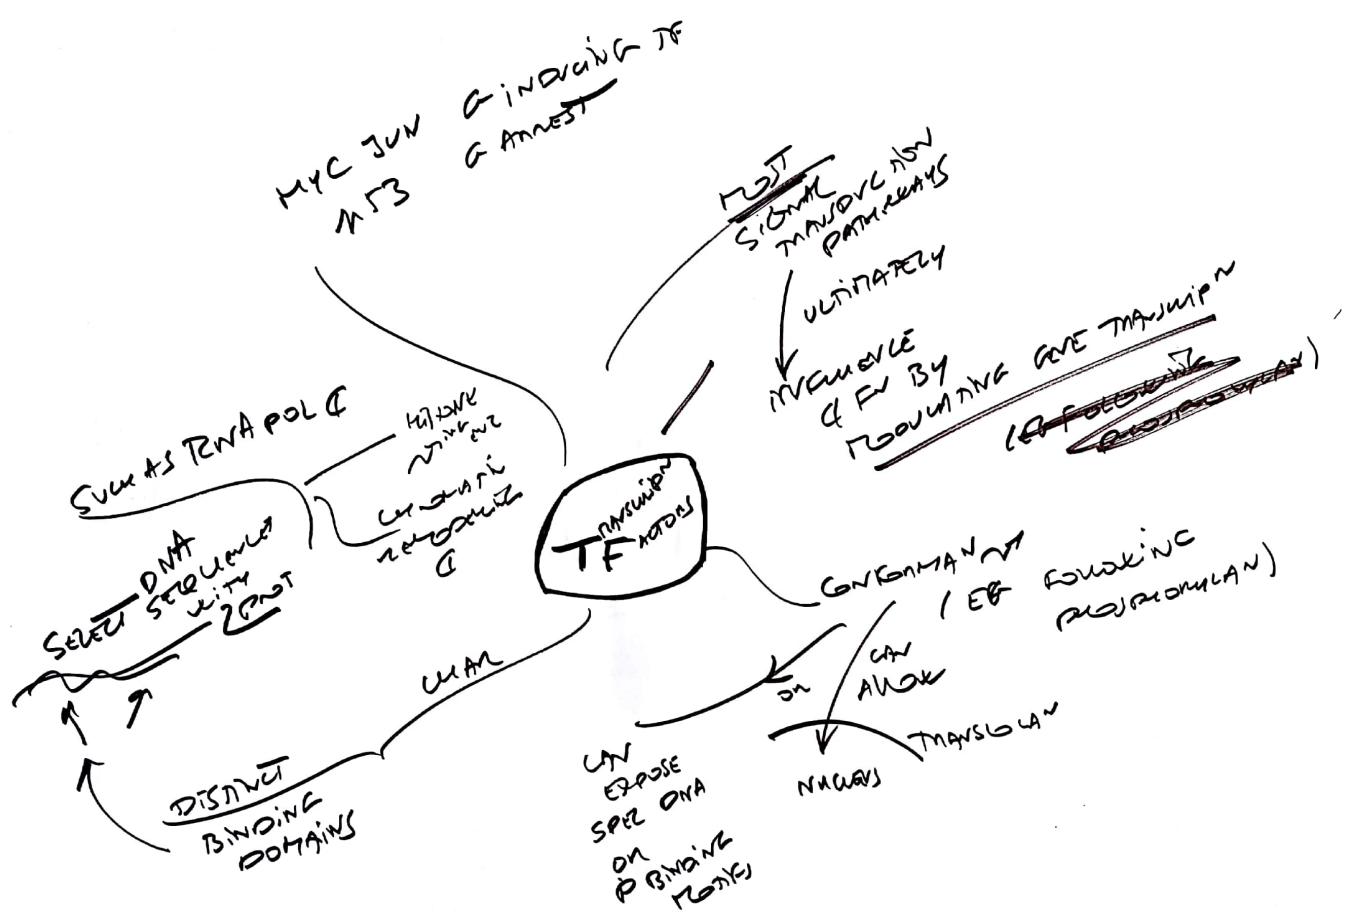 MYC JUN G INDUCING TF
P53 G ARREST
MOST
SIGNAL
TRANSDUCTION
PATHWAYS
ULTIMATELY
INFLUENCE
¢ FN BY
MODULATING GENE TRANSCRIPN
(EG FOLLOWING
PHOSPHORYLAN)
SUCH AS RNA POL ¢
HISTONE
CHROMATIN
REMODELING
¢
TF
TRANSCRIPN
FACTORS
SELECT DNA
SEQUENCES
WITH
CHAR
DISTINCT
BINDING
DOMAINS
CONFORMAN
(EG FOLLOWING
PHOSPHORYLAN)
CAN
ALLOW
OR
TRANSLOCAN
NUCLEUS
CAN
EXPOSE
SPEC DNA
OR
BINDING
MOTIFS